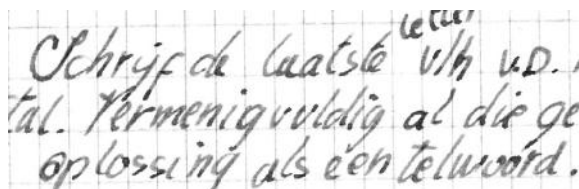 letter
Schrijf de laatste v/h v.D.
tal. Vermenigvuldig al die ge
oplossing als een telwoord.